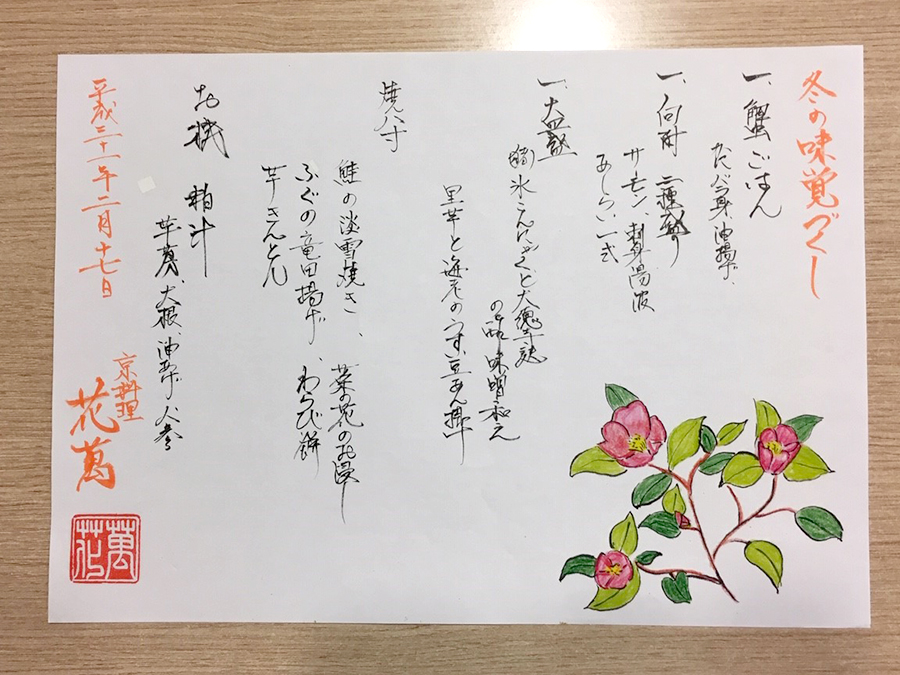 冬の味覚づくし
一、蟹ごはん
かにバラ身、油揚げ、
一、向附 二種盛り
サーモン、刺身湯波
あしらい一式
一、大盛
氷こんにゃくと大徳寺麩
の味噌和え
里芋と海老のうす豆あん掛け
焼八寸
鮭の淡雪焼き、菜の花のお浸し
ふぐの竜田揚げ、わらび餅
芋きんとん
お椀 粕汁
大根、油揚、人参
平成三十一年二月十七日
京料理
花萬
花萬